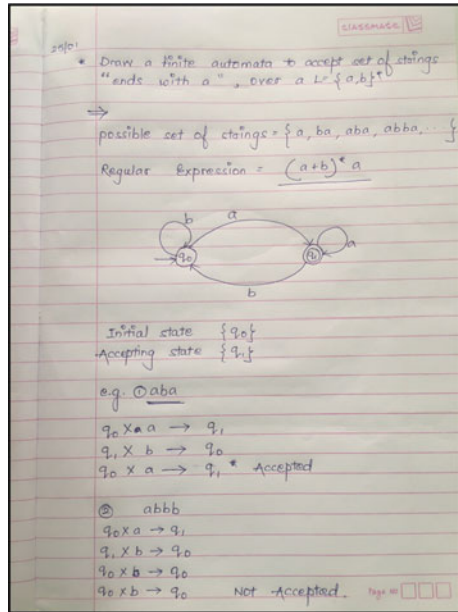 CLASSMATE
25/01
* Draw a finite automata to accept set of strings
"ends with a", over a L = {a,b}*
⇒
possible set of strings = { a, ba, aba, abba, ... }
Regular Expression = (a+b)* a
b a
→ q0 q1 a
b
Initial state {q0}
Accepting state {q1}
e.g. ① aba
q0 × a a → q1
q1 × b → q0
q0 × a → q1 * Accepted
② abbb
q0 × a → q1
q1 × b → q0
q0 × b → q0
q0 × b → q0 Not Accepted.
Page No